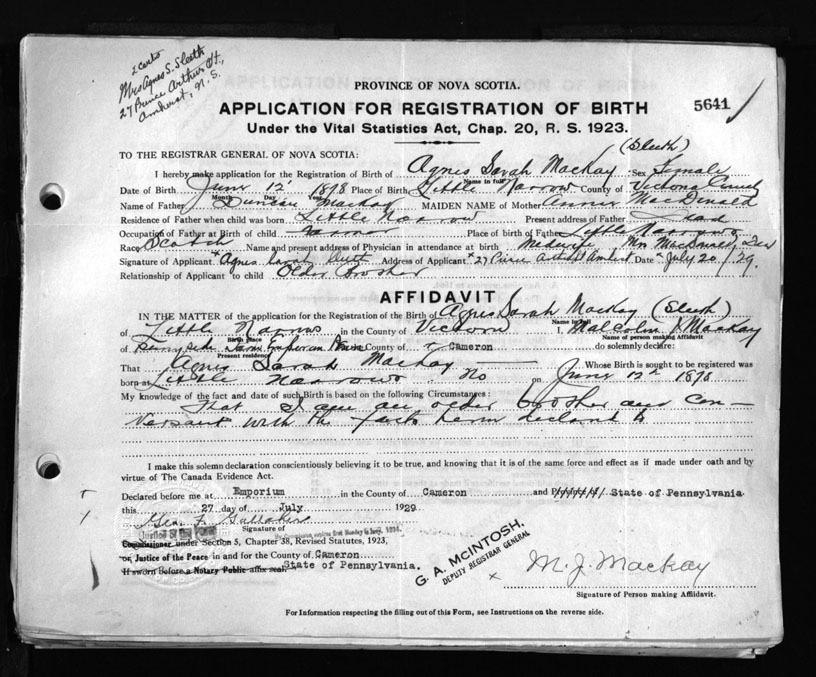 2 Certs
Mrs Agnes S. Sleeth
27 Prince Arthur St.,
Amherst, N.S.
PROVINCE OF NOVA SCOTIA.
APPLICATION FOR REGISTRATION OF BIRTH
5641
Under the Vital Statistics Act, Chap. 20, R. S. 1923.
TO THE REGISTRAR GENERAL OF NOVA SCOTIA:
(Sleeth)
I hereby make application for the Registration of Birth of Agnes Sarah MacKay Sex Female
Name in full
Date of Birth June 12 1878 Place of Birth Little Narrows County of Victoria
Month Day Year
Name of Father Duncan MacKay MAIDEN NAME of Mother Annie MacDonald
Residence of Father when child was born Little Narrows Present address of Father
Occupation of Father at Birth of child Farmer Place of birth of Father Little Narrows
Race Scotch Name and present address of Physician in attendance at birth Midwife Mrs MacDonald,
Signature of Applicant Agnes Sarah Sleeth Address of Applicant 27 Prince Arthur St Amherst Date July 20/29.
Relationship of Applicant to child Older Brother
AFFIDAVIT
IN THE MATTER of the application for the Registration of the Birth of Agnes Sarah MacKay (Sleeth)
Name in full
of Little Narrows in the County of Victoria I, Malcolm J MacKay
Birth place Name of person making Affidavit
of Emporium County of Cameron do solemnly declare:
Present residence
That Agnes Sarah MacKay Whose Birth is sought to be registered was
born at Little Narrows on June 12 1878
My knowledge of the fact and date of such Birth is based on the following Circumstances:
That I am an older brother and con-
versant with the facts herein declared to
I make this solemn declaration conscientiously believing it to be true, and knowing that it is of the same force and effect as if made under oath and by
virtue of The Canada Evidence Act.
Declared before me at Emporium in the County of Cameron and State of Pennsylvania.
this 27 day of July 1929
Geo. F.
Signature of
Commissioner under Section 5, Chapter 38, Revised Statutes, 1923,
or, Justice of the Peace in and for the County of Cameron
If sworn before a Notary Public affix seal. State of Pennsylvania.
G. A. McINTOSH,
DEPUTY REGISTRAR GENERAL
M. J. MacKay
Signature of Person making Affidavit.
For Information respecting the filling out of this Form, see Instructions on the reverse side.